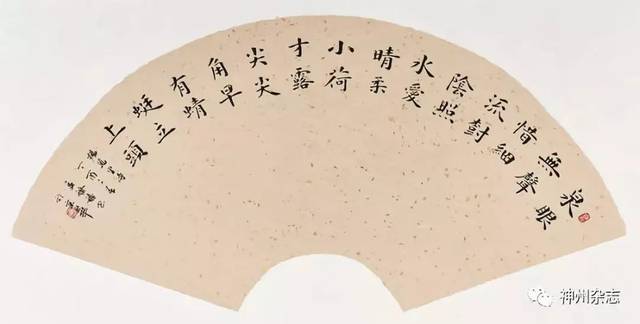 泉眼
無聲
惜細
流樹
陰照
水愛
晴柔
小荷
才露
尖尖
角早
有蜻
蜓立
上頭
楊萬里
丁酉
神州杂志